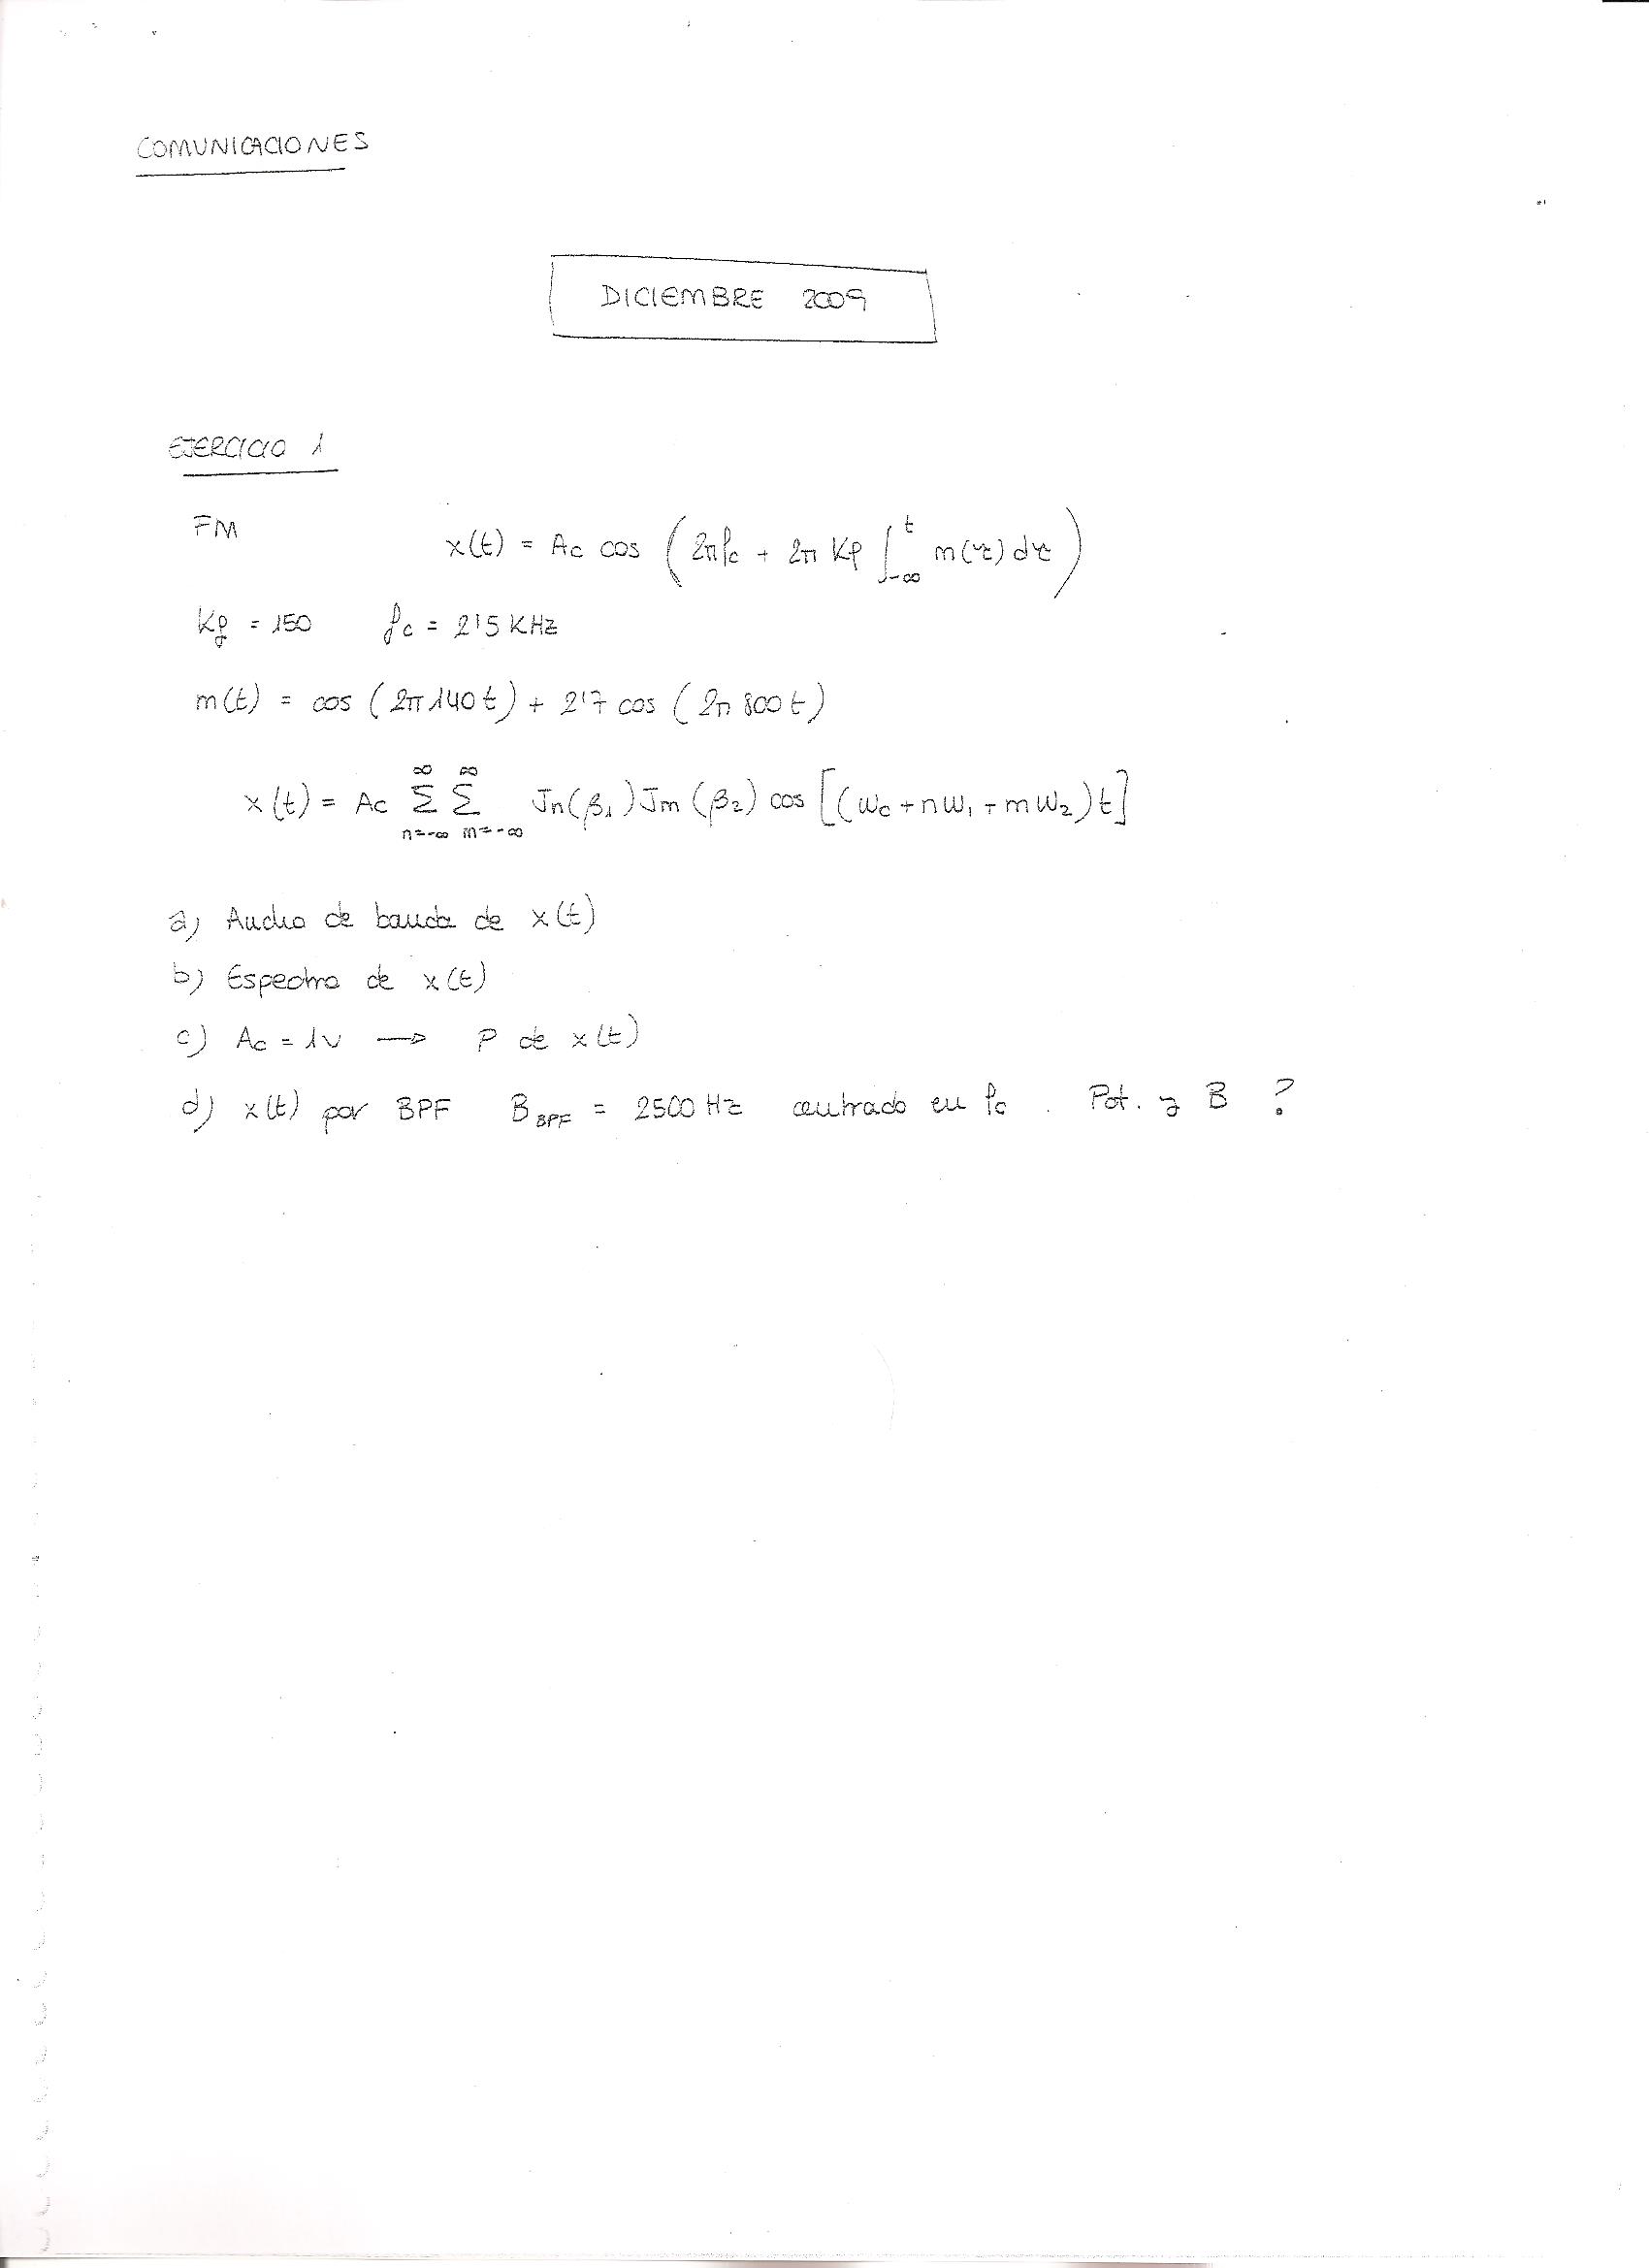 COMUNICACIONES
DICIEMBRE 2009
EJERCICIO 1
FM x(t) = Ac cos (2πfc + 2π Kf ∫_{-∞}^{t} m(τ) dτ)
Kf = 150 fc = 2'5 KHz
m(t) = cos (2π 140 t) + 2'7 cos (2π 800 t)
x(t) = Ac Σ_{n=-∞}^{∞} Σ_{m=-∞}^{∞} Jn(β1) Jm(β2) cos [(ωc + nω1 + mω2) t]
a) Ancho de banda de x(t)
b) Espectro de x(t)
c) Ac = 1v → P de x(t)
d) x(t) por BPF B_BPF = 2500 Hz centrado en fc . Pot. y B ?